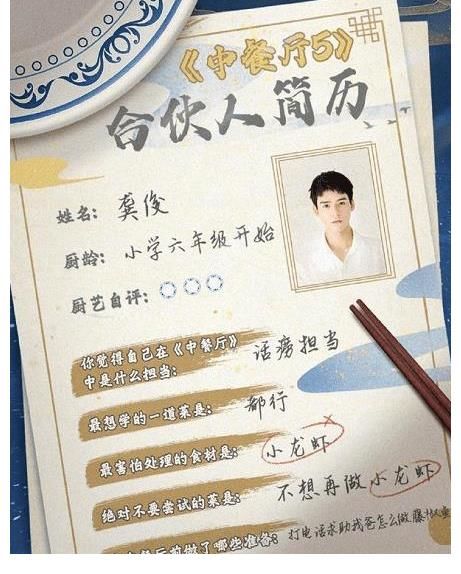 《中餐厅5》
合伙人简历
姓名: 龚俊
厨龄: 小学六年级开始
厨艺自评:
你觉得自己在《中餐厅》 话痨担当
中是什么担当:
最想学的一道菜是: 都行
最害怕处理的食材是: 小龙虾
绝对不要尝试的菜是: 不想再做小龙虾
中餐厅前做了哪些准备: 打电话求助我爸怎么做藤椒鱼